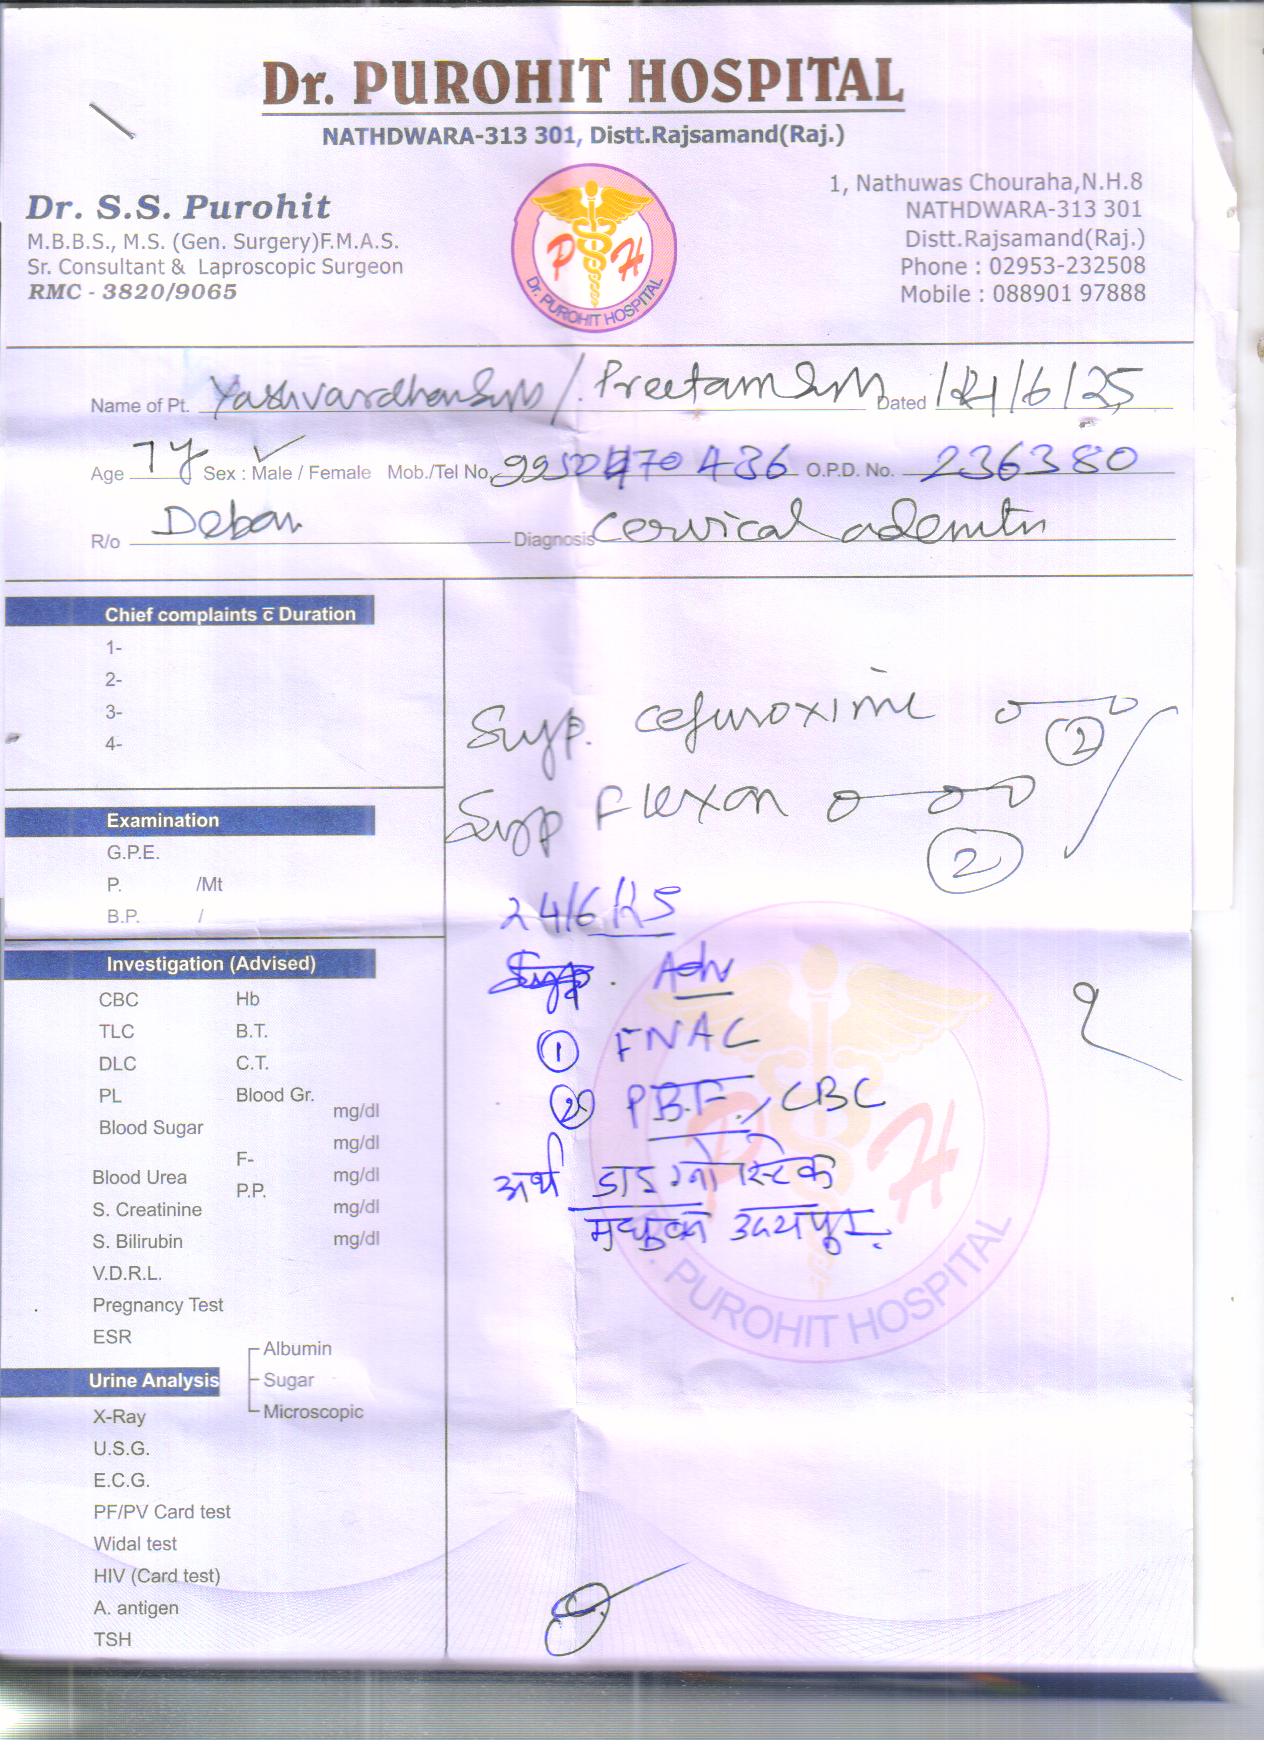 Dr. PUROHIT HOSPITAL
NATHDWARA-313 301, Distt.Rajsamand(Raj.)
Dr. S.S. Purohit
M.B.B.S., M.S. (Gen. Surgery)F.M.A.S.
Sr. Consultant & Laproscopic Surgeon
RMC - 3820/9065
P H
Dr. PUROHIT HOSPITAL
1, Nathuwas Chouraha,N.H.8
NATHDWARA-313 301
Distt.Rajsamand(Raj.)
Phone : 02953-232508
Mobile : 088901 97888
Name of Pt. Yashvardhan / Preetam Dated /6/25
Age 7y Sex : Male / Female Mob./Tel No. O.P.D. No. 236380
R/o Diagnosis Cervical
Chief complaints c̅ Duration
1-
2-
3-
4-
Syp. cefuroxime
2
Syp Flexon
2
Examination
G.P.E.
P. /Mt
B.P. /
24/6/25
Adv
1 FNAC
2 P.B.F., CBC
अर्थ डाइग्नोस्टिक
मधुबन उदयपुर
Investigation (Advised)
CBC Hb
TLC B.T.
DLC C.T.
PL Blood Gr.
mg/dl
Blood Sugar
mg/dl
F-
Blood Urea mg/dl
P.P.
S. Creatinine mg/dl
S. Bilirubin mg/dl
V.D.R.L.
Pregnancy Test
ESR
Albumin
Urine Analysis Sugar
Microscopic
X-Ray
U.S.G.
E.C.G.
PF/PV Card test
Widal test
HIV (Card test)
A. antigen
TSH
P H
Dr. PUROHIT HOSPITAL